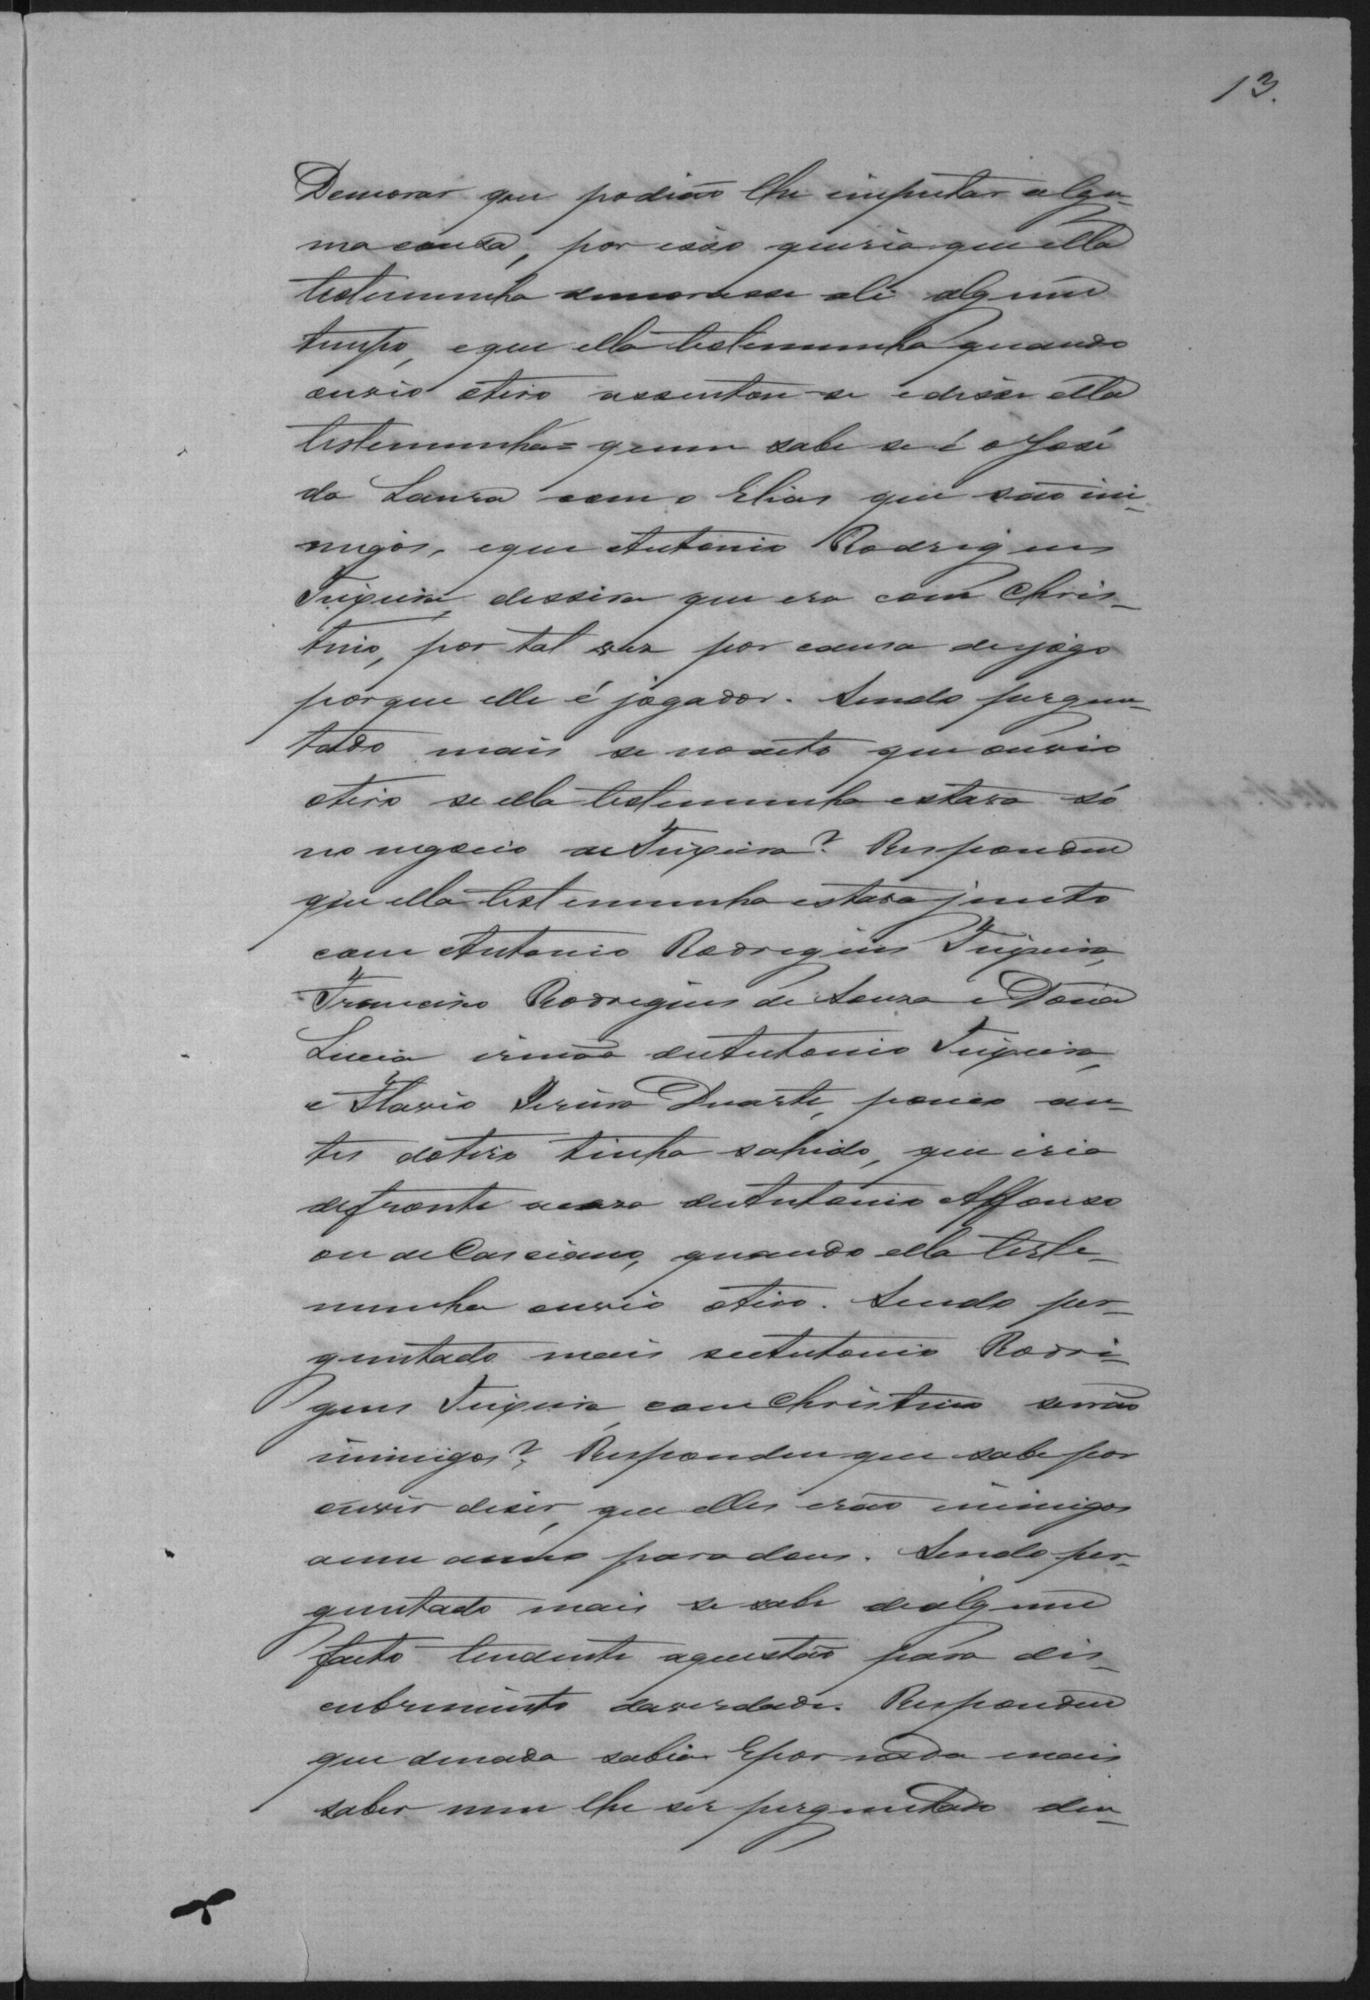 13.
Demorar que podião lhe imputar algu-
ma couza, por isso queria que ella
testemunha demorasse ali algum
tempo, e que ella testemunha quando
ouvio otiro assentou-se e disse ella
testemunha = quem sabe se é o José
da Laura com o Elias que são ini-
migos, e que Antonio Rodrigues
Teixeira, dissera que era com Chris-
tino, por tal vez por causa de jogo
porque elle é jogador. Sendo pergun-
tado mais se no acto que ouvio
otiro se ella testemunha estava só
no negocio de Teixeira? Respondeu
que ella testemunha estava junto
com Antonio Rodrigues Teixeira,
Francisco Rodrigues de Souza e Dona
Lucia irmã de Antonio Teixeira,
e Flavio Duarte, pouco an-
tes do tiro tinha sahido, que iria
defronte a caza de Antonio Affonso
ou de Cassiano, quando ella teste-
munha ouvio otiro. Sendo per-
guntado mais se Antonio Rodri-
gues Teixeira com Christino serão
inimigos? Respondeu que sabe por
ouvir diser, que elles erão inimigos
a um anno para dous. Sendo per-
guntado mais se sabe de algum
facto tendente a questão para dis-
cubrimento da verdade. Respondeu
que de nada sabia E por nada mais
saber nem lhe ser perguntado deu-